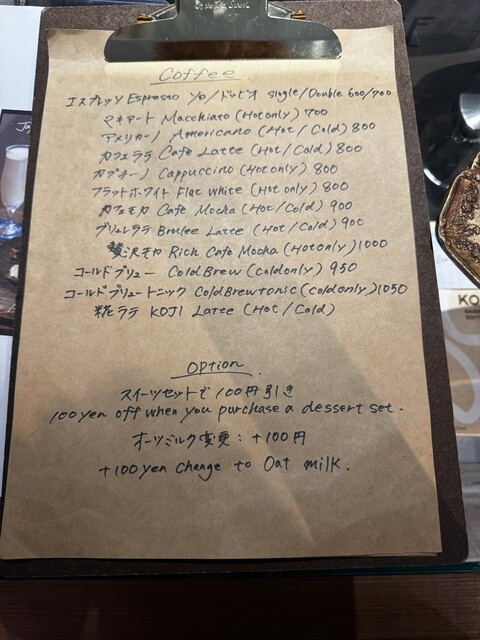 Coffee
エスプレッソ Espresso ソロ/ドッピオ single/Double 600/700
マキアート Macchiato (Hot only) 700
アメリカーノ Americano (Hot / Cold) 800
カフェラテ Cafe Latte (Hot / Cold) 800
カプチーノ Cappuccino (Hot only) 800
フラットホワイト Flat white (Hot only) 800
カフェモカ Cafe Mocha (Hot / Cold) 900
ブリュレラテ Brulee Latte (Hot / Cold) 900
贅沢モカ Rich Cafe Mocha (Hot only) 1000
コールドブリュー Cold Brew (Cold only) 950
コールドブリュートニック Cold Brew tonic (Cold only) 1050
糀ラテ KOJI Latte (Hot / Cold)
Option
スイーツセットで100円引き
100 yen off when you purchase a dessert set.
オーツミルク変更：+100円
+100 yen change to Oat milk.
KO